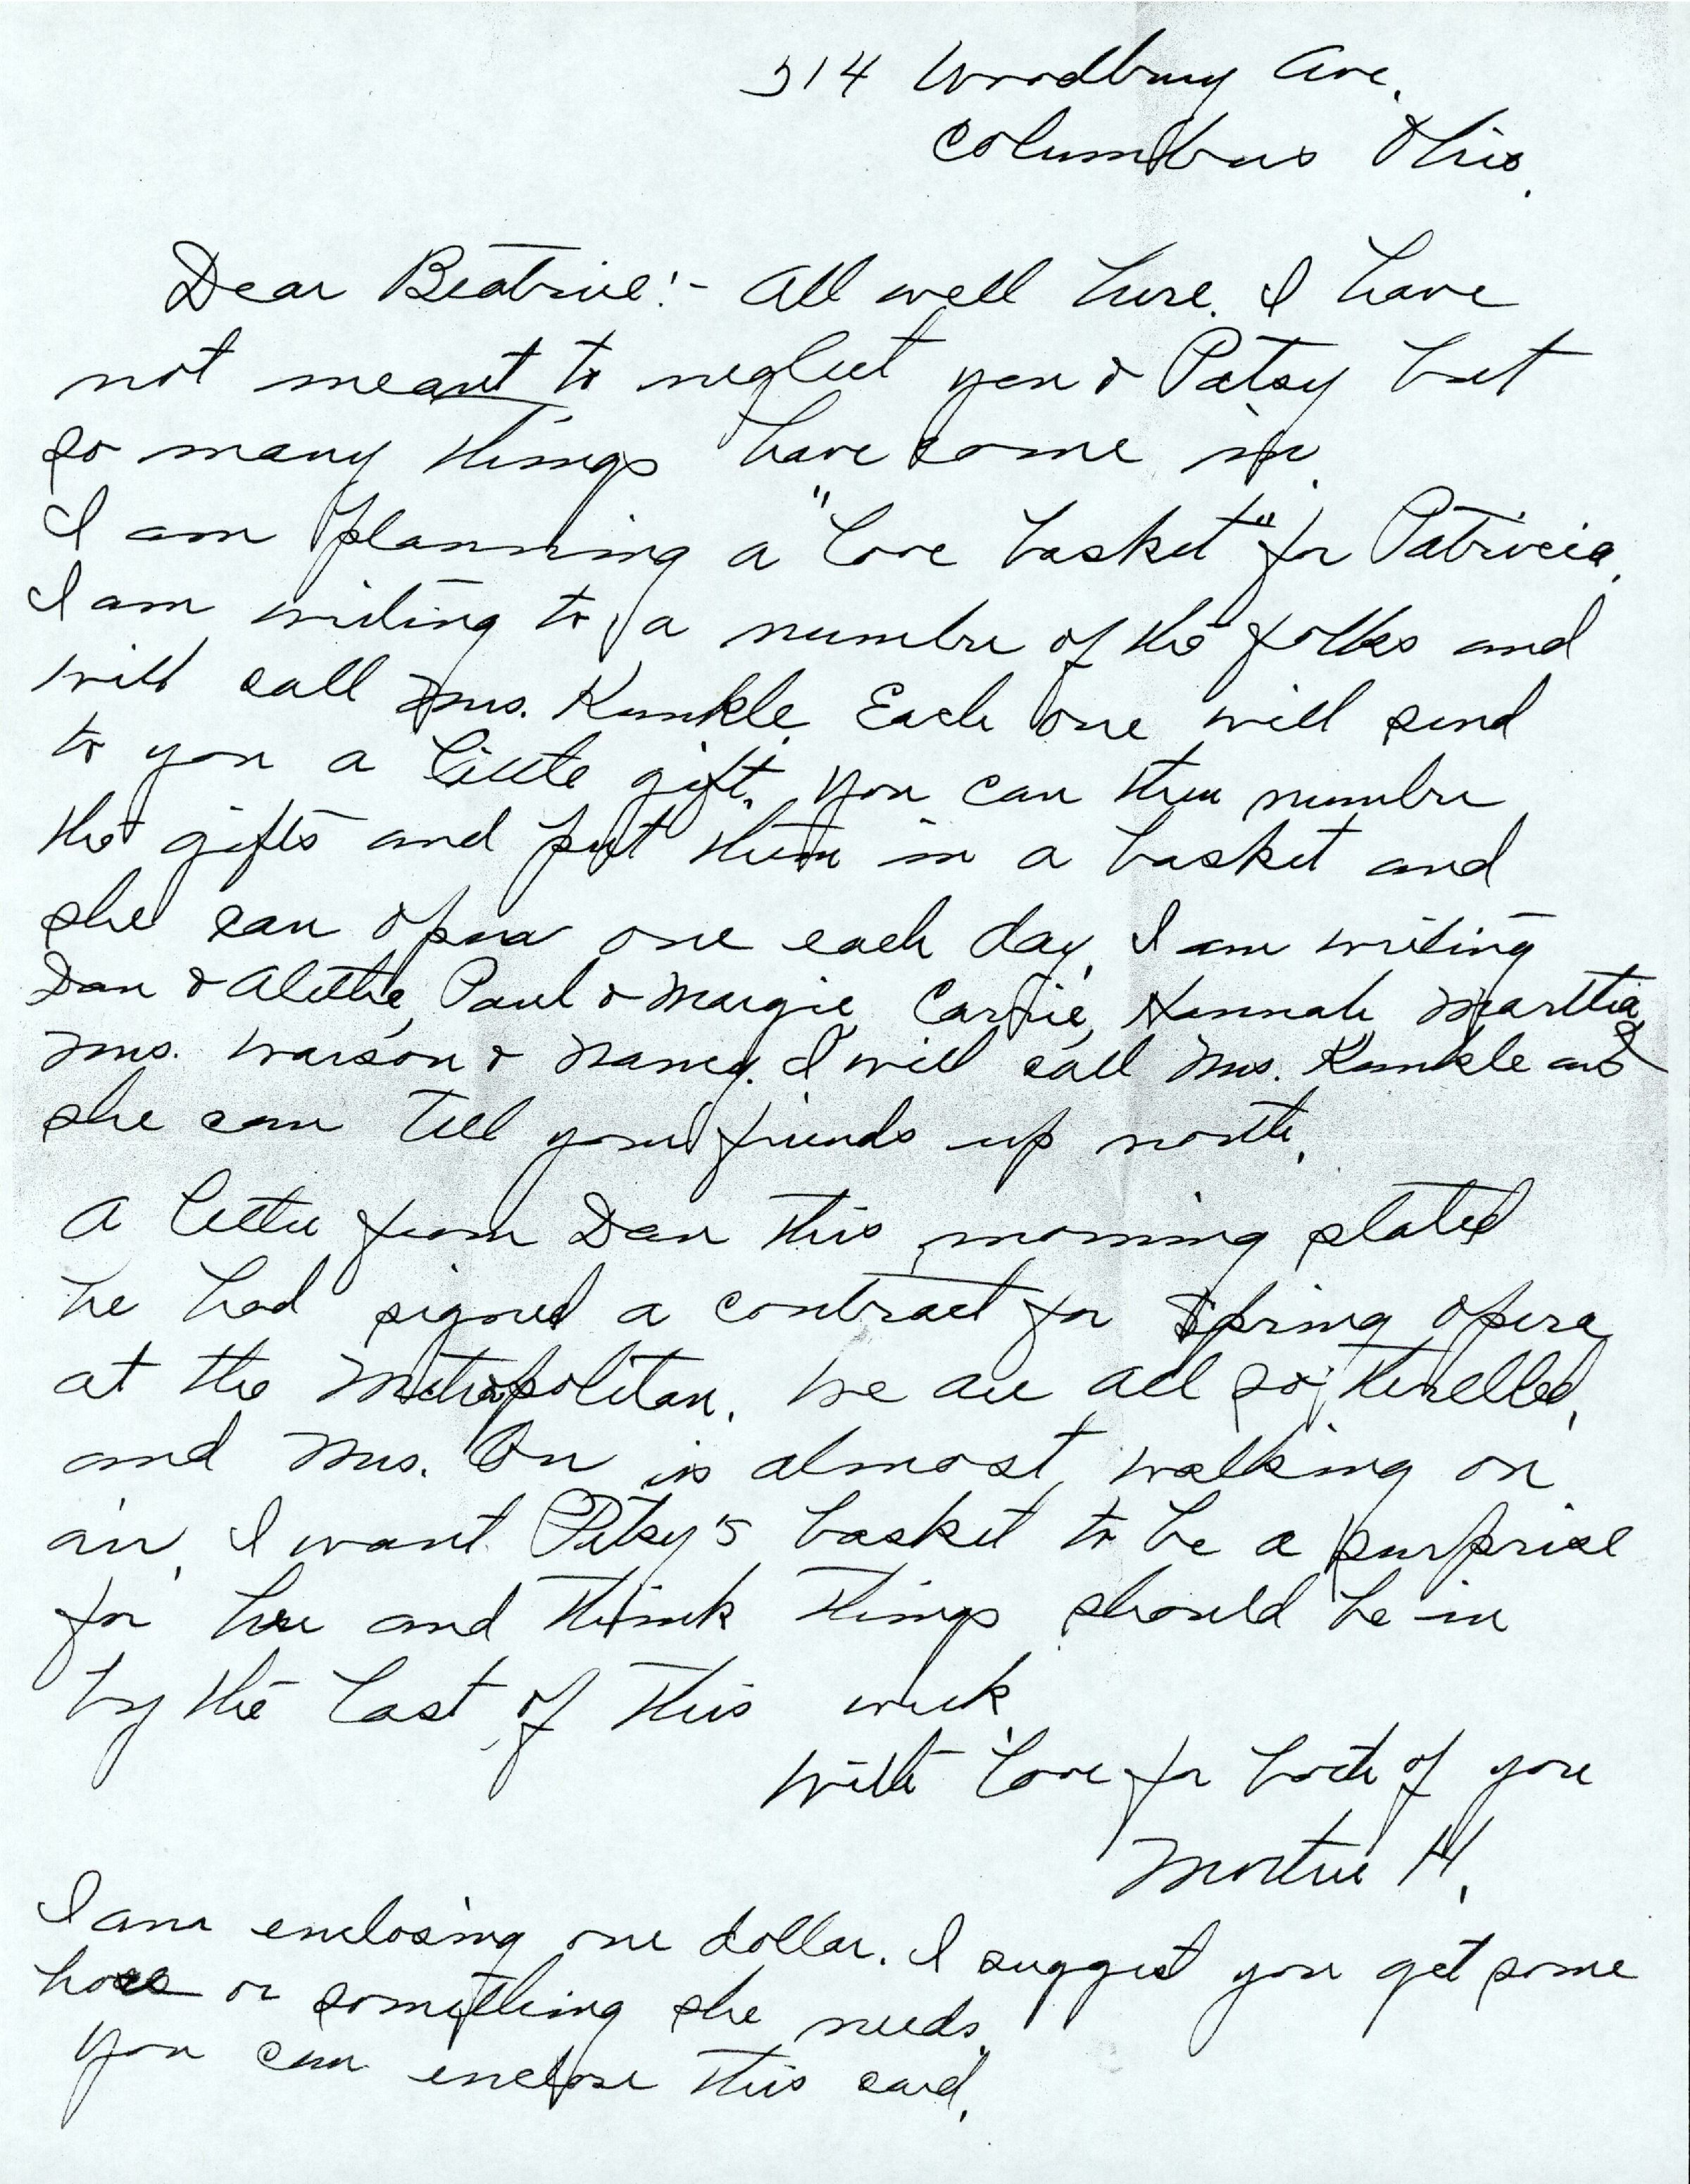 514 Woodbury Ave.
Columbus Ohio.
Dear Beatrice:- All well here. I have
not meant to neglect you & Patsy but
so many things have come in.
I am planning a "love basket" for Patricia.
I am writing to a number of the folks and
will call Mrs. Kunkle. Each one will send
to you a little gift. You can then number
the gifts and put them in a basket and
she can open one each day. I am writing
Dan & Alethe, Paul & Margie, Carrie, Hannah Martha,
Mrs. & Nancy. I will call Mrs. Kunkle and
she can tell your friends up north.
A letter from Dan this morning stated
he had signed a contract for Spring opera
at the Metropolitan. We are all so thrilled,
and Mrs. is almost walking on
air. I want Patsy's basket to be a surprise
for her and think things should be in
by the last of this week.
With love for both of you
H.
I am enclosing one dollar. I suggest you get some
hose or something she needs.
You can enclose this card.